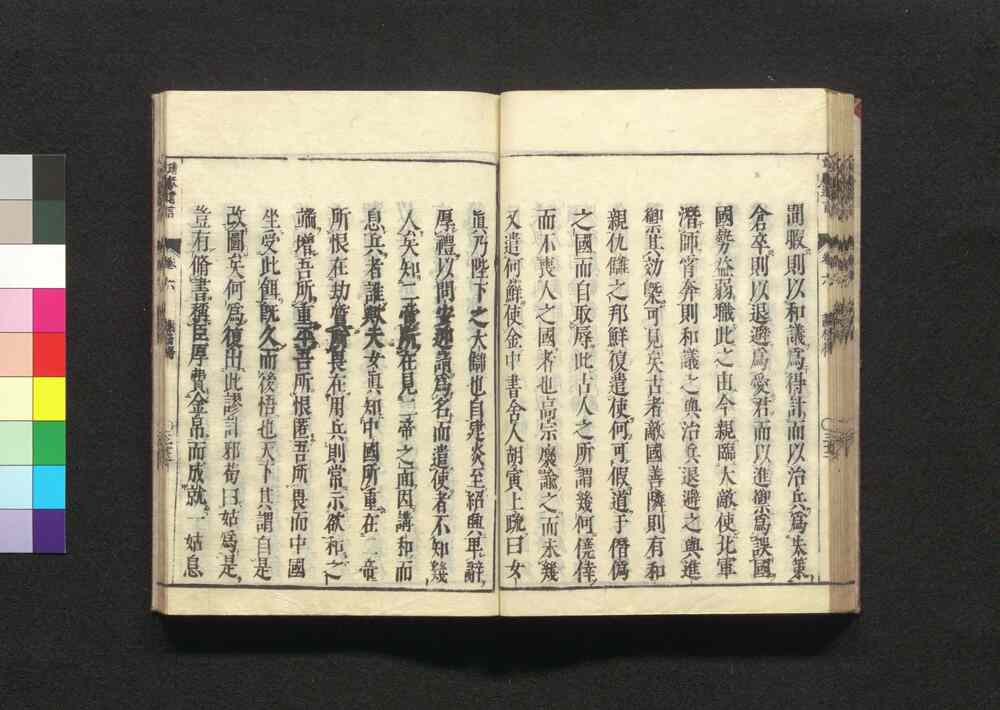 間暇則以和議爲得計而以治兵爲失策
倉卒則以退避爲愛君而以進禦爲誤國
國勢益弱職此之由今親臨大敵使北軍
潛師宵奔則和議之與治兵退避之與進
禦其効槩可見矣古者敵國善隣則有和
親仇讎之邦鮮復遣使何可假道于僭僞
之國而自取辱此古人之所謂幾何僥倖
而不喪人之國者也高宗褒諭之而未幾
又遣何蘚使金中書舍人胡寅上疏曰女
眞乃陛下之大讎也自建炎至紹興卑辭
厚禮以問安迎請爲名而遣使者不知幾
人矣知二帝所在見二帝之面因講和而
息兵者誰歟夫女眞知中國所重在二帝
所恨在劫質所畏在用兵則常示欲和之
端增吾所重平吾所恨匿吾所畏而中國
坐受此餌既久而後悟也天下其謂自是
改圖矣何爲復出此謬計邪苟曰姑爲是
豈有脩書稱臣厚費金帛而成就一姑息
卷六
卷六